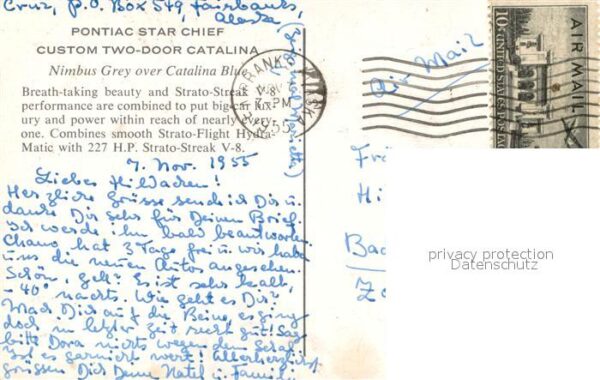 Cruz, P.O. Box 549, Fairbanks,
Alaska
PONTIAC STAR CHIEF
CUSTOM TWO-DOOR CATALINA
Nimbus Grey over Catalina Blue
Breath-taking beauty and Strato-Streak
performance are combined to put big car
ury and power within reach of nearly every
one. Combines smooth Strato-Flight Hydra-
Matic with 227 H.P. Strato-Streak V-8.
7. Nov. 1955
Liebes Hildachen!
Herzliche Grüsse sende ich Dir u.
danke Dir sehr für Deinen Brief.
Ich werde ihn bald beantworten
Chano hat 3 Tage frei u. wir haben
uns die neuen Autos angesehen.
Schön, gelt? Es ist sehr kalt,
- 40° nachts. Wie geht es Dir?
Mach Dich auf die Beine, es ging
doch in letzter Zeit recht gut! Sag
bitte Dora nichts wegen dem Schal
ist es garnicht wert! Allerherzlichst
grüssen Dich Deine Natel u. Familie
PM
1955
Air Mail
AIR MAIL
10¢
UNITED STATES
Frä
Hi
Bad
privacy protection
Datenschutz